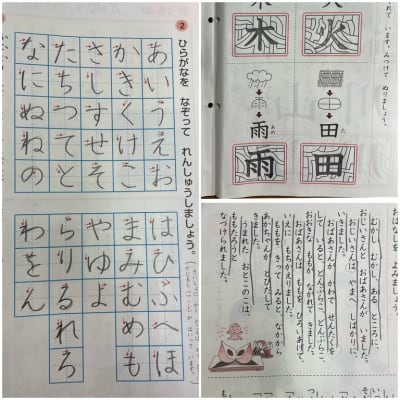 2
ひらがなを なぞって れんしゅうしましょう。
あいうえお
かきくけこ
さしすせそ
たちつてと
なにぬねの
はひふへほ
まみむめも
やゆよ
らりるれろ
わをん
れて います。みつけて
ぬりましょう。
火
木
田
た
田
雨
あめ
雨
はなしを よみましょう。
むかし むかし、ある ところに
おじいさんと おばあさんが いました。
おじいさんは、やまへ しばかりに、
いきました。
おばあさんが かわで せんたくを
して いると、どんぶらこ、どんぶらこ、
おおきな ももが ながれて きました。
おばあさんは ももを ひろいあげて、
いえに もちかえりました。
ももを きって みると、なかから
あかちゃんが とびだして
きました。
うまれた おとこのこは、
ももたろうと
なづけられました。